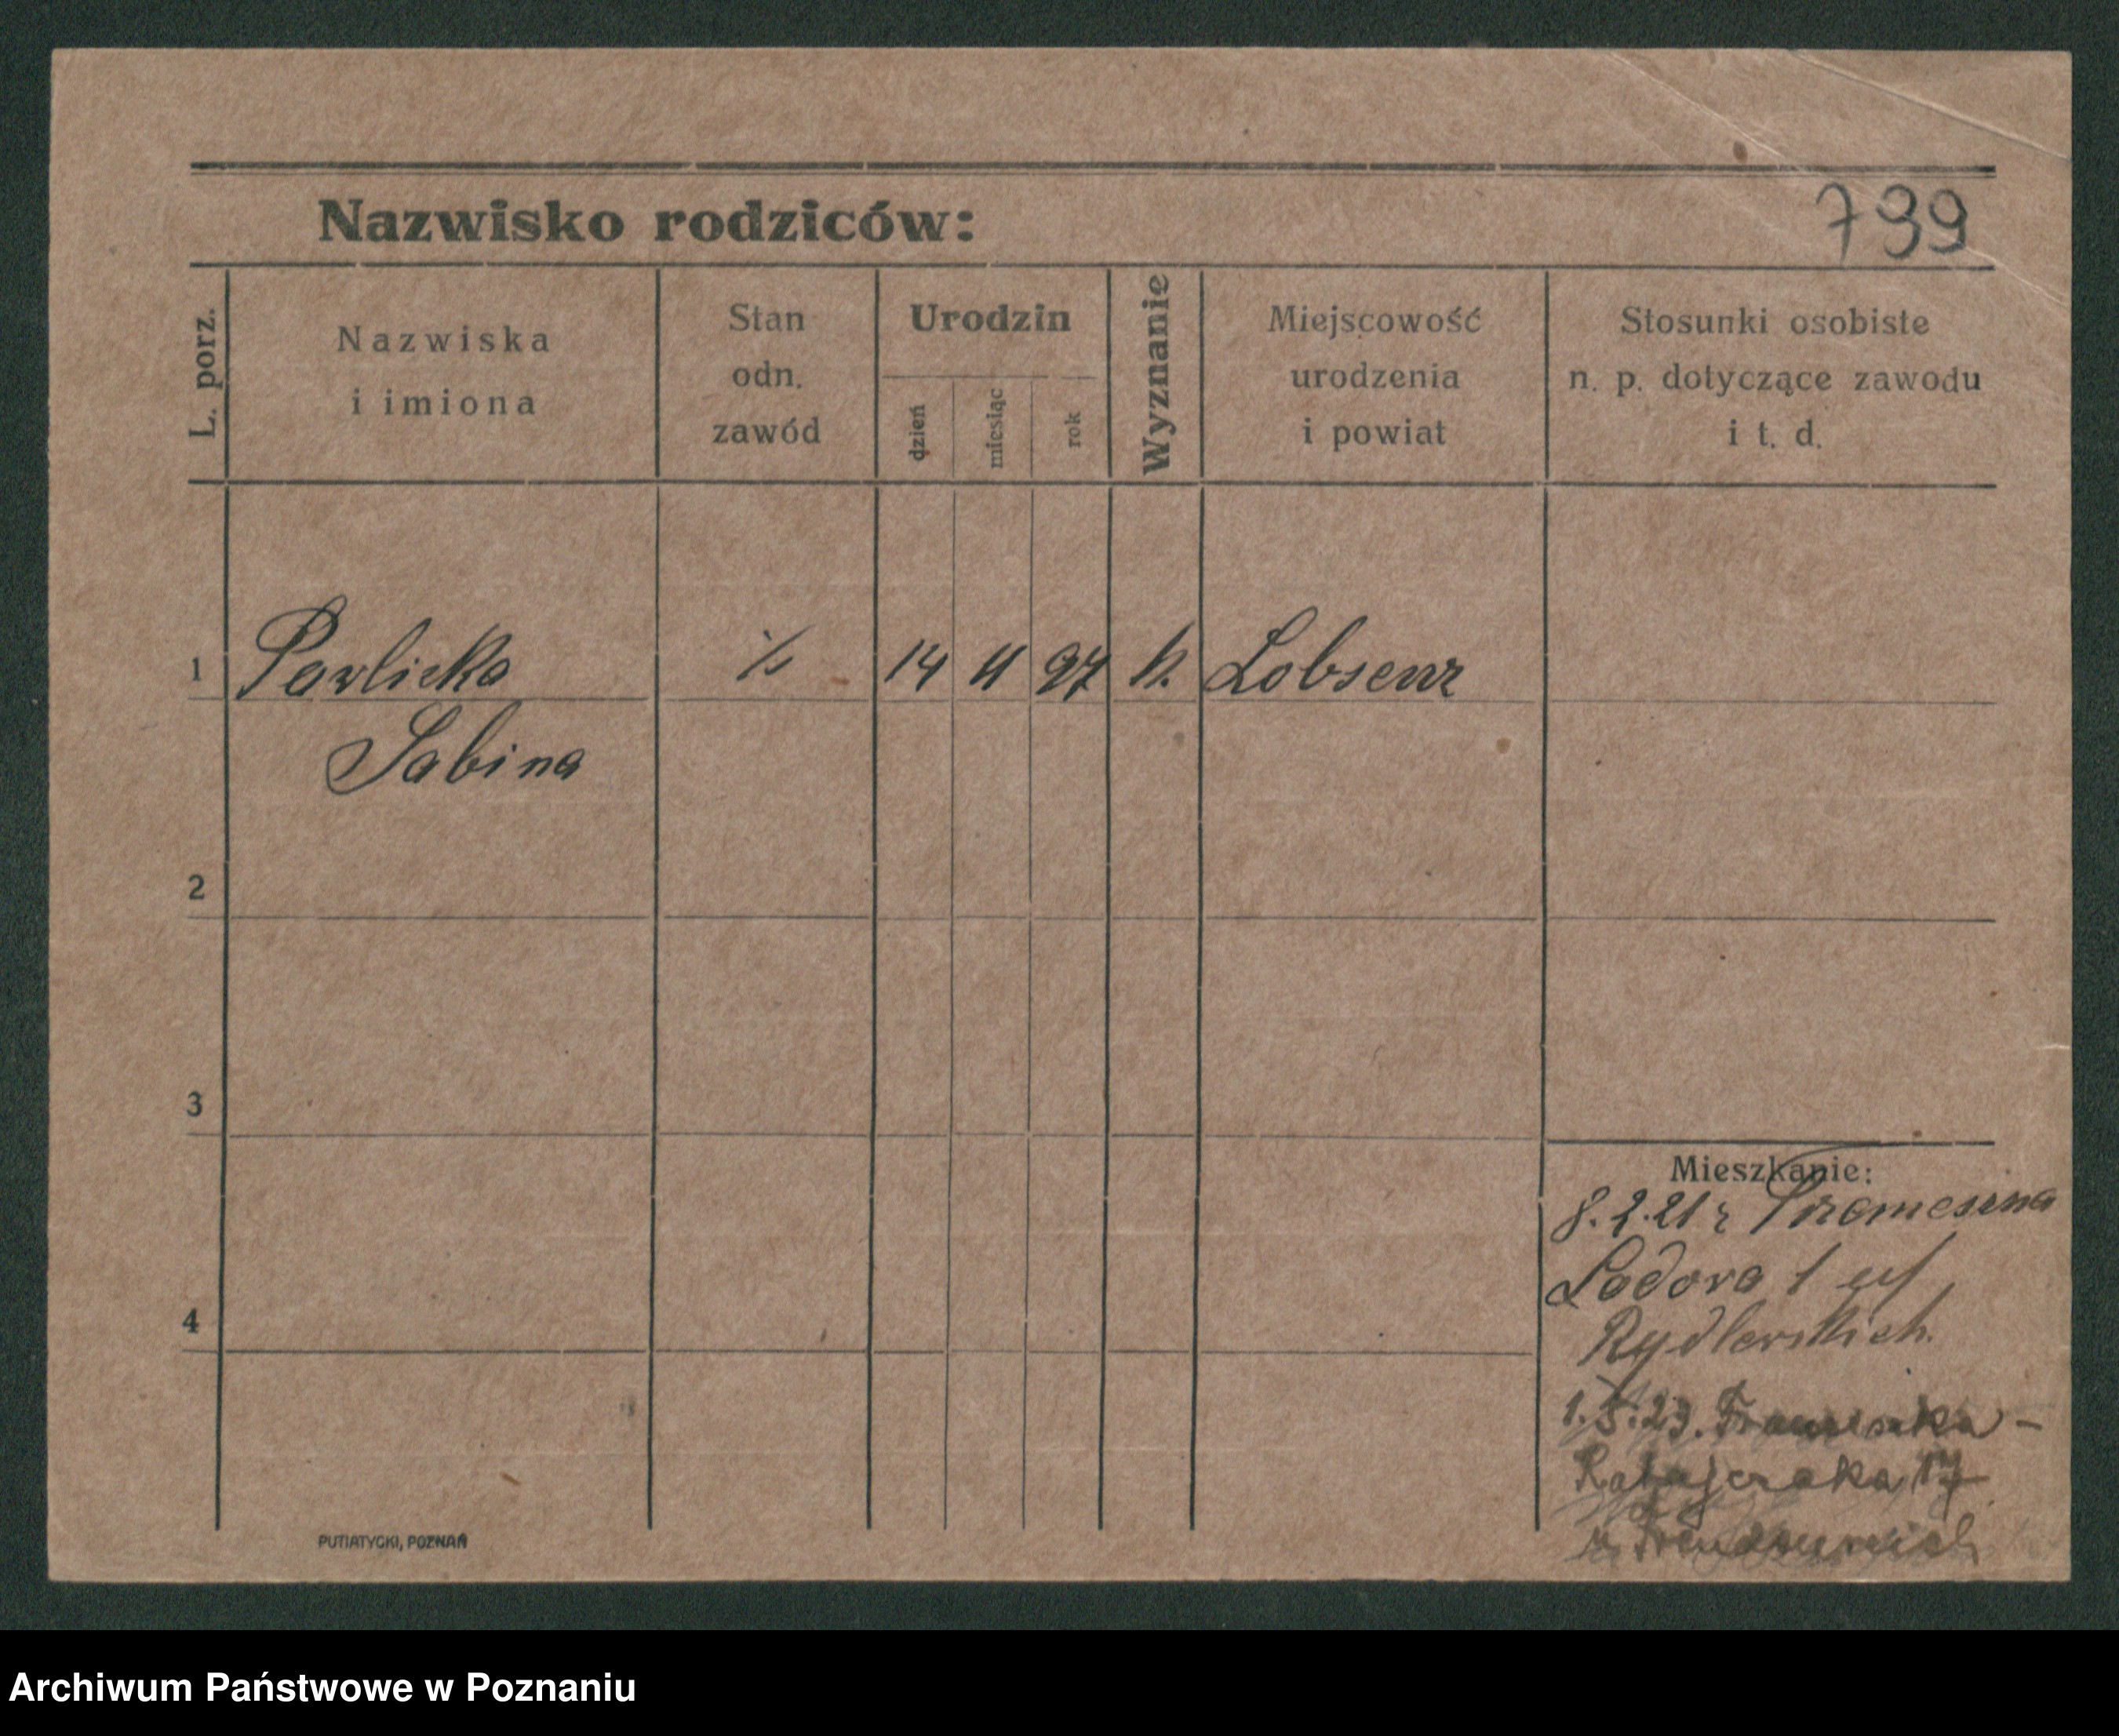 Nazwisko rodziców:
799
L. porz.
Nazwiska
i imiona
Stan
odn.
zawód
Urodzin
dzień
miesiąc
rok
Wyznanie
Miejscowość
urodzenia
i powiat
Stosunki osobiste
n. p. dotyczące zawodu
i t. d.
1 Pawlicka 14 4 97 k. Lobsenz
Sabina
2
3
4
Mieszkanie:
8.2.21 z
1
1.5.23.
Ratajczaka 17
PUTIATYCKI, POZNAŃ
Archiwum Państwowe w Poznaniu